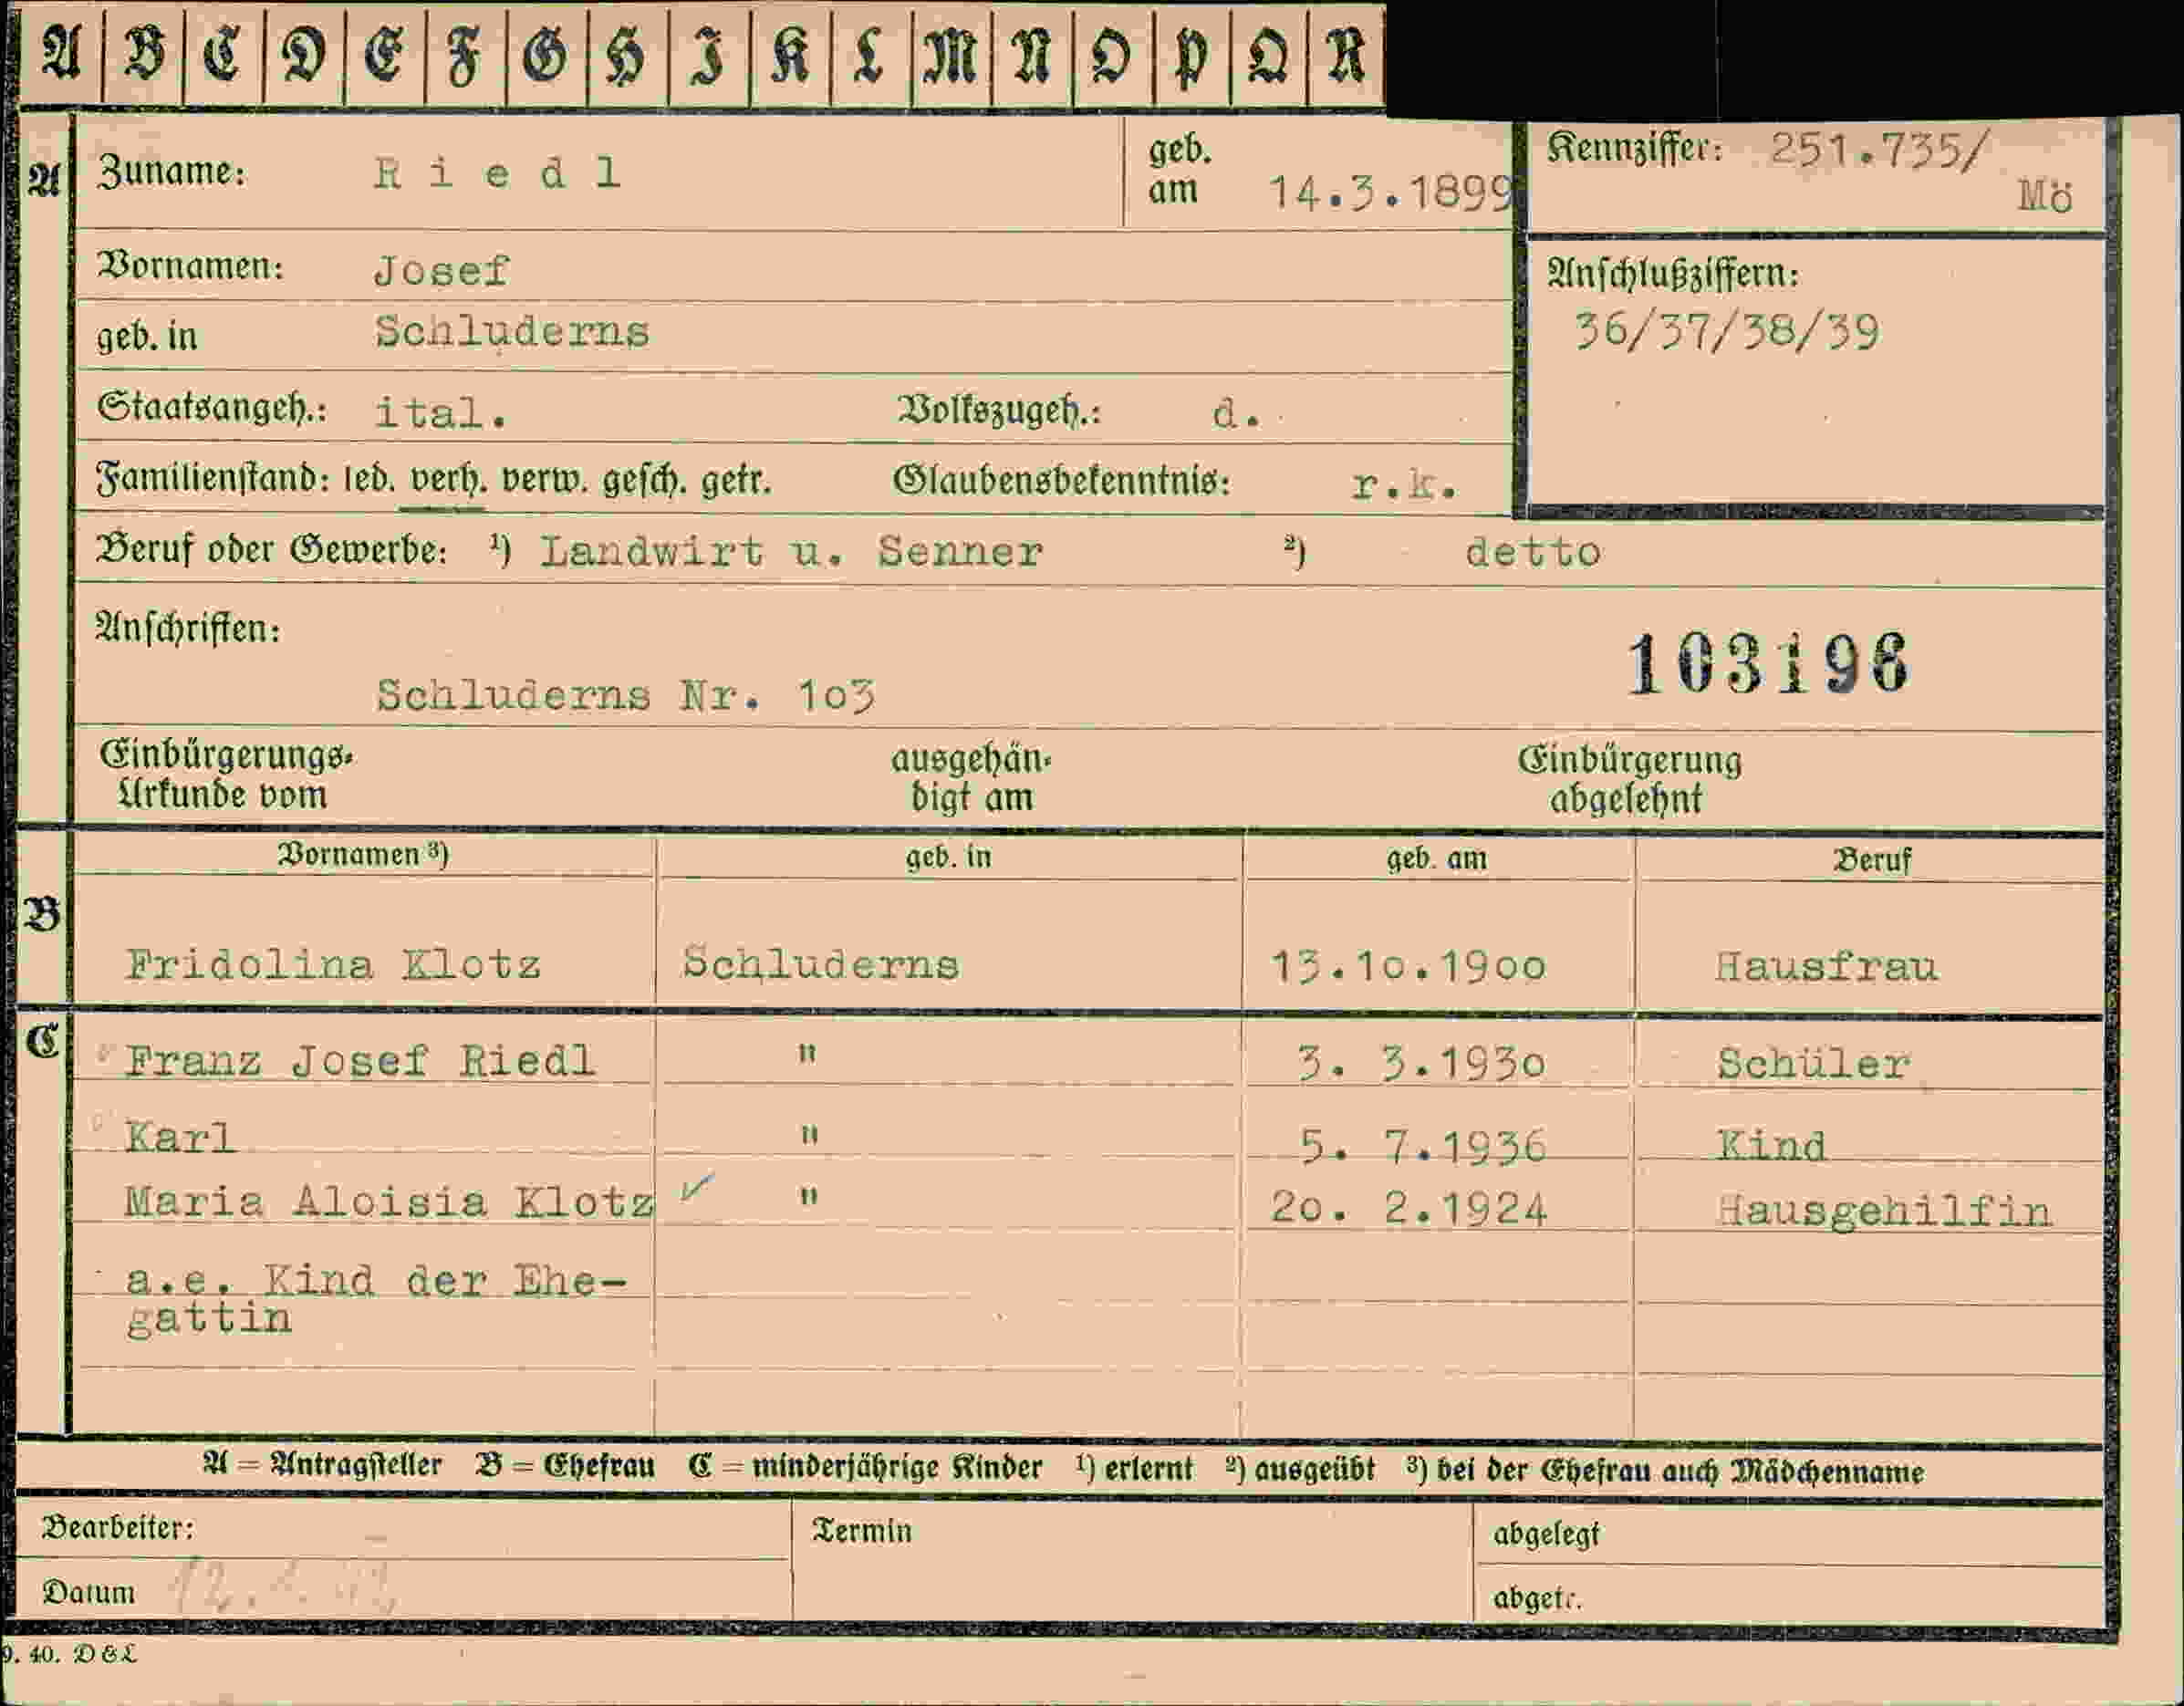 A B C D E F G H I K L M N O P Q R
A Zuname: Riedl geb. am 14.3.1899 Kennziffer: 251.735/ Mö
Vornamen: Josef Anschlußziffern:
geb. in Schluderns 36/37/38/39
Staatsangeh.: ital. Volkszugeh.: d.
Familienstand: led. verh. verw. gesch. getr. Glaubensbekenntnis: r.k.
Beruf oder Gewerbe: ¹) Landwirt u. Senner ²) detto
Anschriften:
103196
Schluderns Nr. 103
Einbürgerungs- ausgehän- Einbürgerung
Urkunde vom digt am abgelehnt
Vornamen ³) geb. in geb. am Beruf
B
Fridolina Klotz Schluderns 13.10.1900 Hausfrau
C
Franz Josef Riedl " 3. 3.1930 Schüler
Karl " 5. 7.1936 Kind
Maria Aloisia Klotz ✓ " 20. 2.1924 Hausgehilfin
a.e. Kind der Ehe-
gattin
A = Antragsteller B = Ehefrau C = minderjährige Kinder ¹) erlernt ²) ausgeübt ³) bei der Ehefrau auch Mädchenname
Bearbeiter: Termin abgelegt
Datum abgetr.
9. 40. D & L